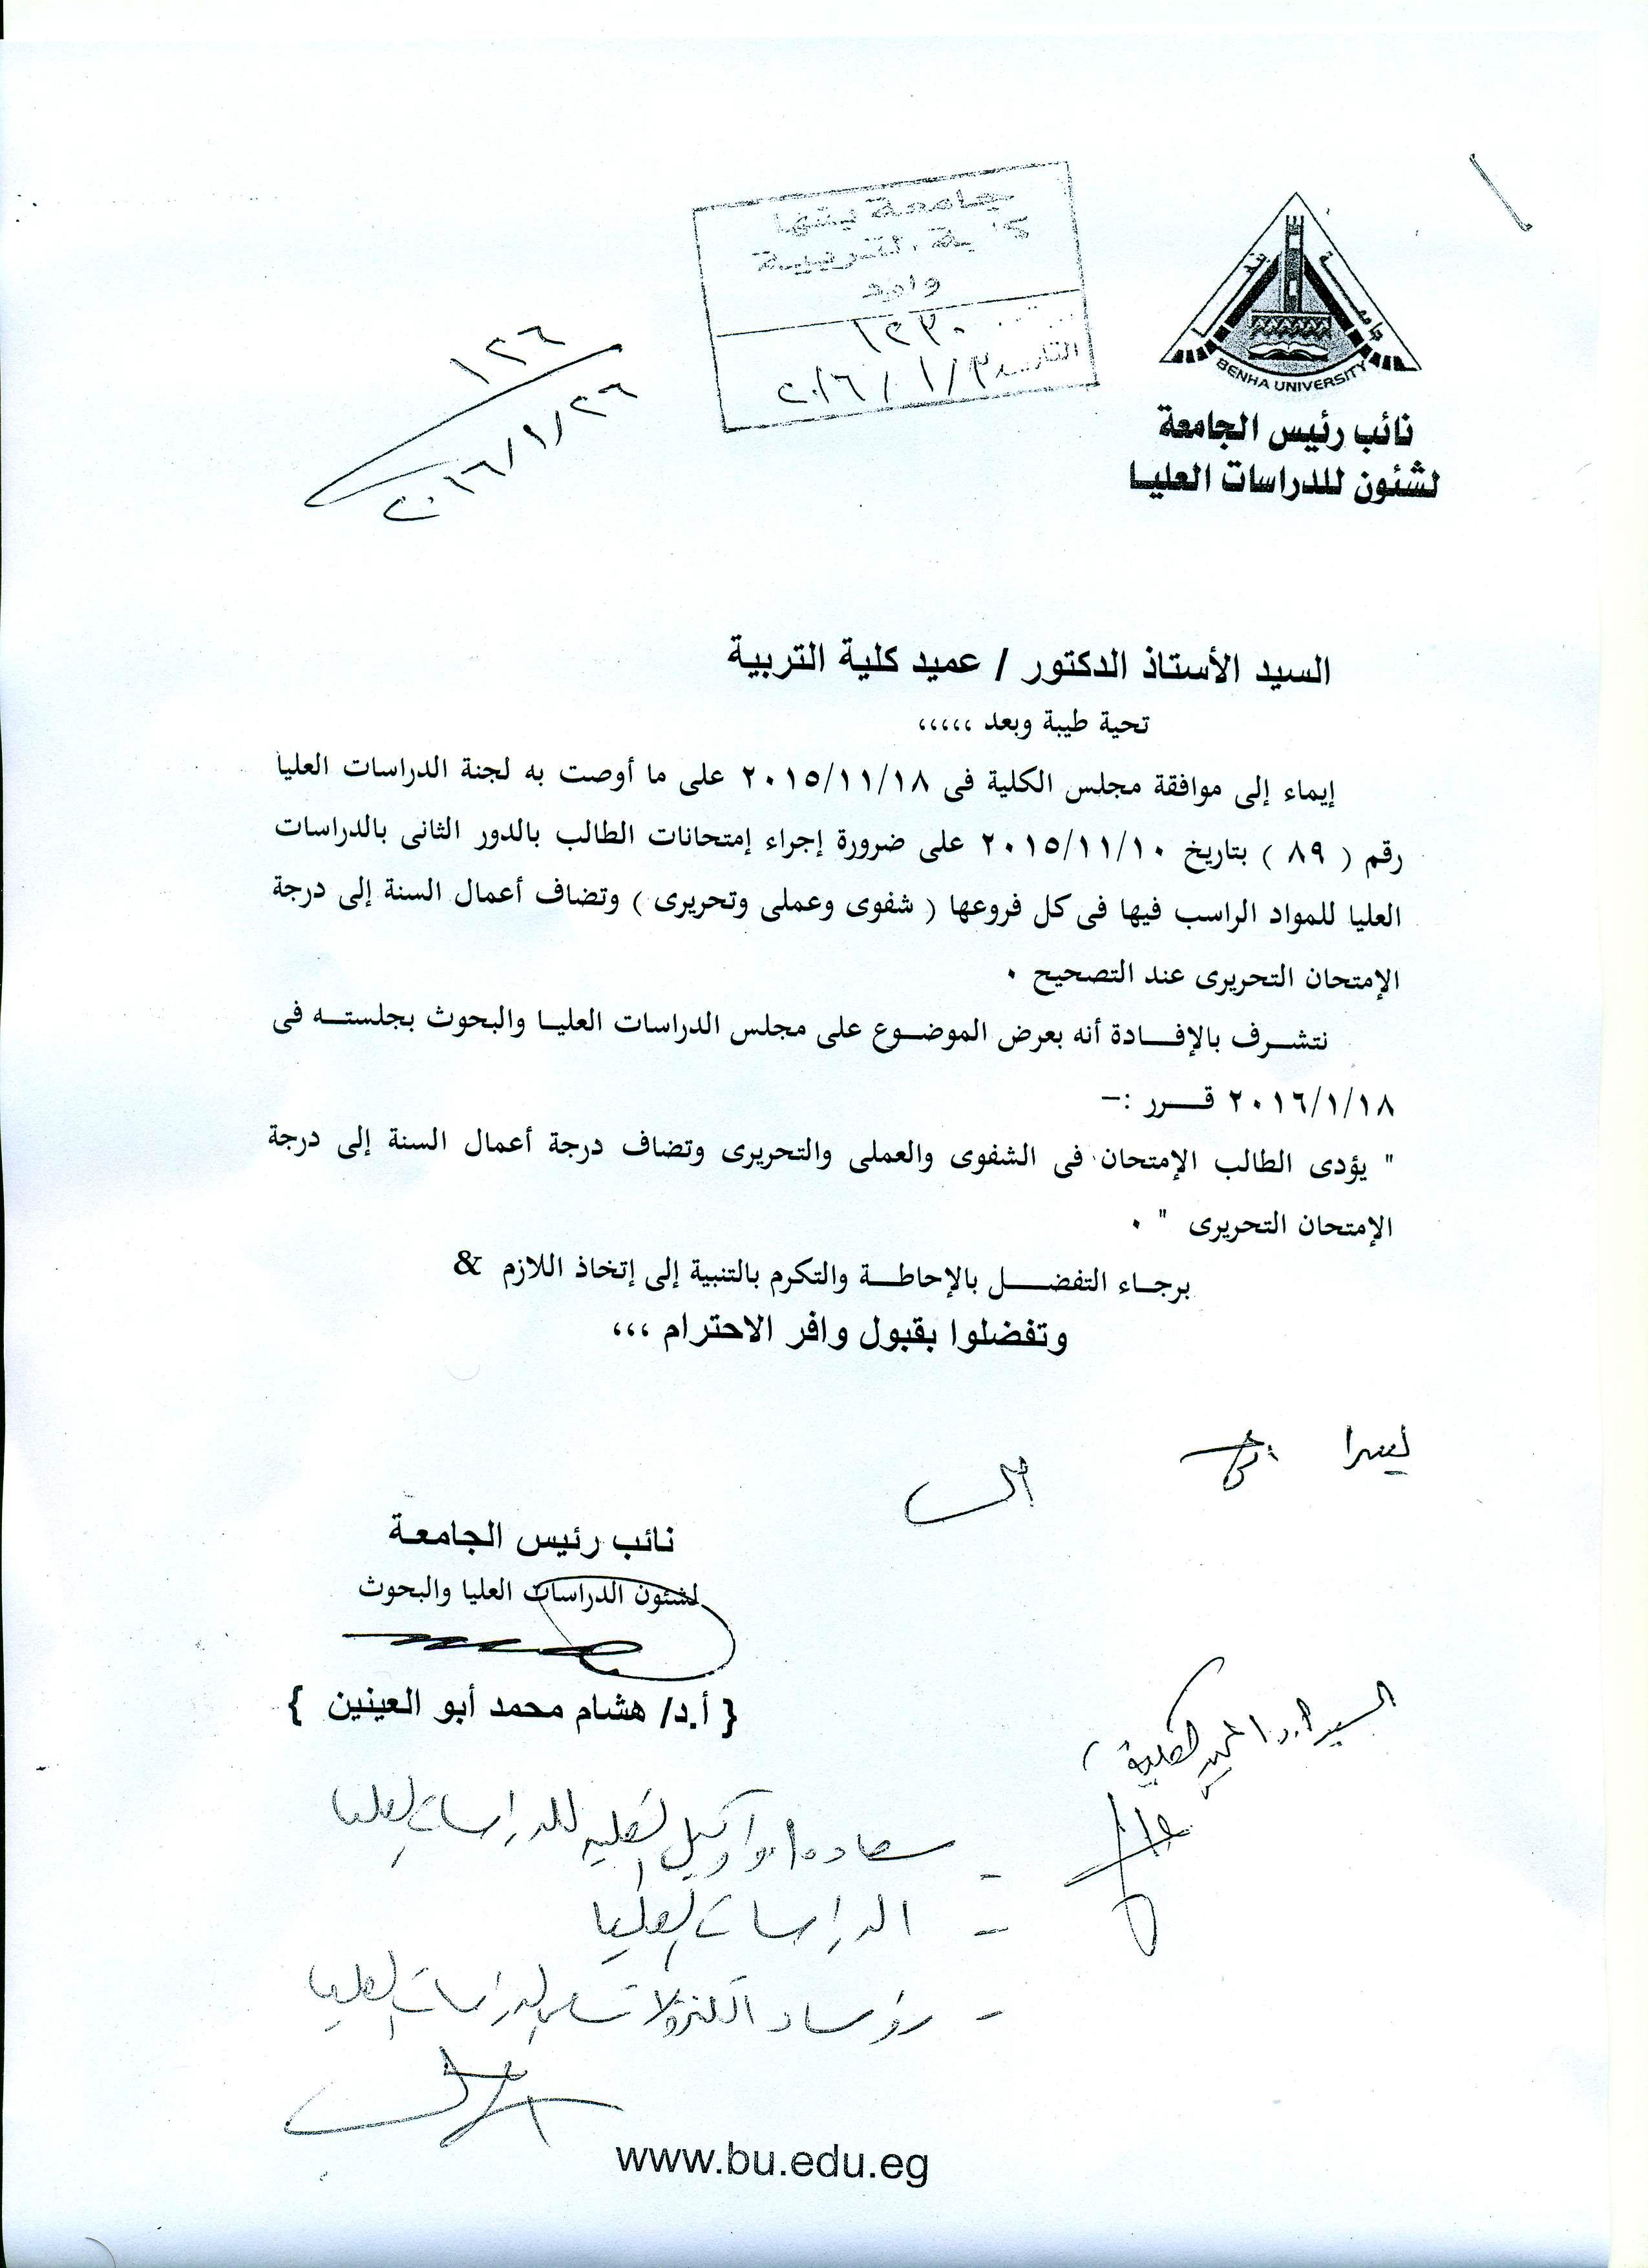 جامعة بنها
كلية التربية
وارد
١٢٣٠
التاريخ ٢٠١٦/١/٣
١٢٦
٢٠١٦/١/٢٦
جامعة بنها
BENHA UNIVERSITY
نائب رئيس الجامعة
لشئون للدراسات العليا
السيد الأستاذ الدكتور / عميد كلية التربية
تحية طيبة وبعد ،،،،،
إيماء إلى موافقة مجلس الكلية فى ٢٠١٥/١١/١٨ على ما أوصت به لجنة الدراسات العليا
رقم ( ٨٩ ) بتاريخ ٢٠١٥/١١/١٠ على ضرورة إجراء إمتحانات الطالب بالدور الثانى بالدراسات
العليا للمواد الراسب فيها فى كل فروعها ( شفوى وعملى وتحريرى ) وتضاف أعمال السنة إلى درجة
الإمتحان التحريرى عند التصحيح ٠
نتشرف بالإفادة أنه بعرض الموضوع على مجلس الدراسات العليا والبحوث بجلسته فى
٢٠١٦/١/١٨ قرر :-
" يؤدى الطالب الإمتحان فى الشفوى والعملى والتحريرى وتضاف درجة أعمال السنة إلى درجة
الإمتحان التحريرى " ٠
برجاء التفضل بالإحاطة والتكرم بالتنبية إلى إتخاذ اللازم &
وتفضلوا بقبول وافر الاحترام ،،،
نائب رئيس الجامعة
لشئون الدراسات العليا والبحوث
{ أ.د/ هشام محمد أبو العينين }
السيد أ.د/ عميد الكلية
- سعادة أ.د/ وكيل الكلية للدراسات العليا
- الدراسات العليا
- رؤساء الكنترولات بالدراسات العليا
www.bu.edu.eg